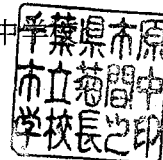 中
千葉県市原
市立菊間中
学校長之印